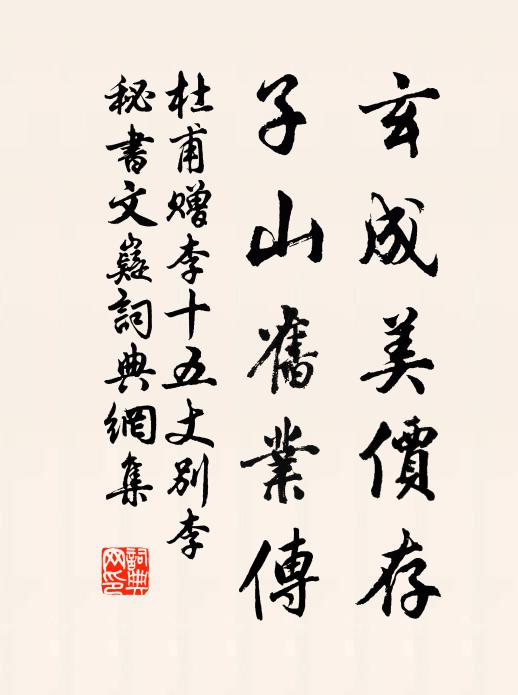 玄成美價存
子山舊業傳
杜甫贈李十五丈別李
秘書文嶷詞典網集
詞典
网印